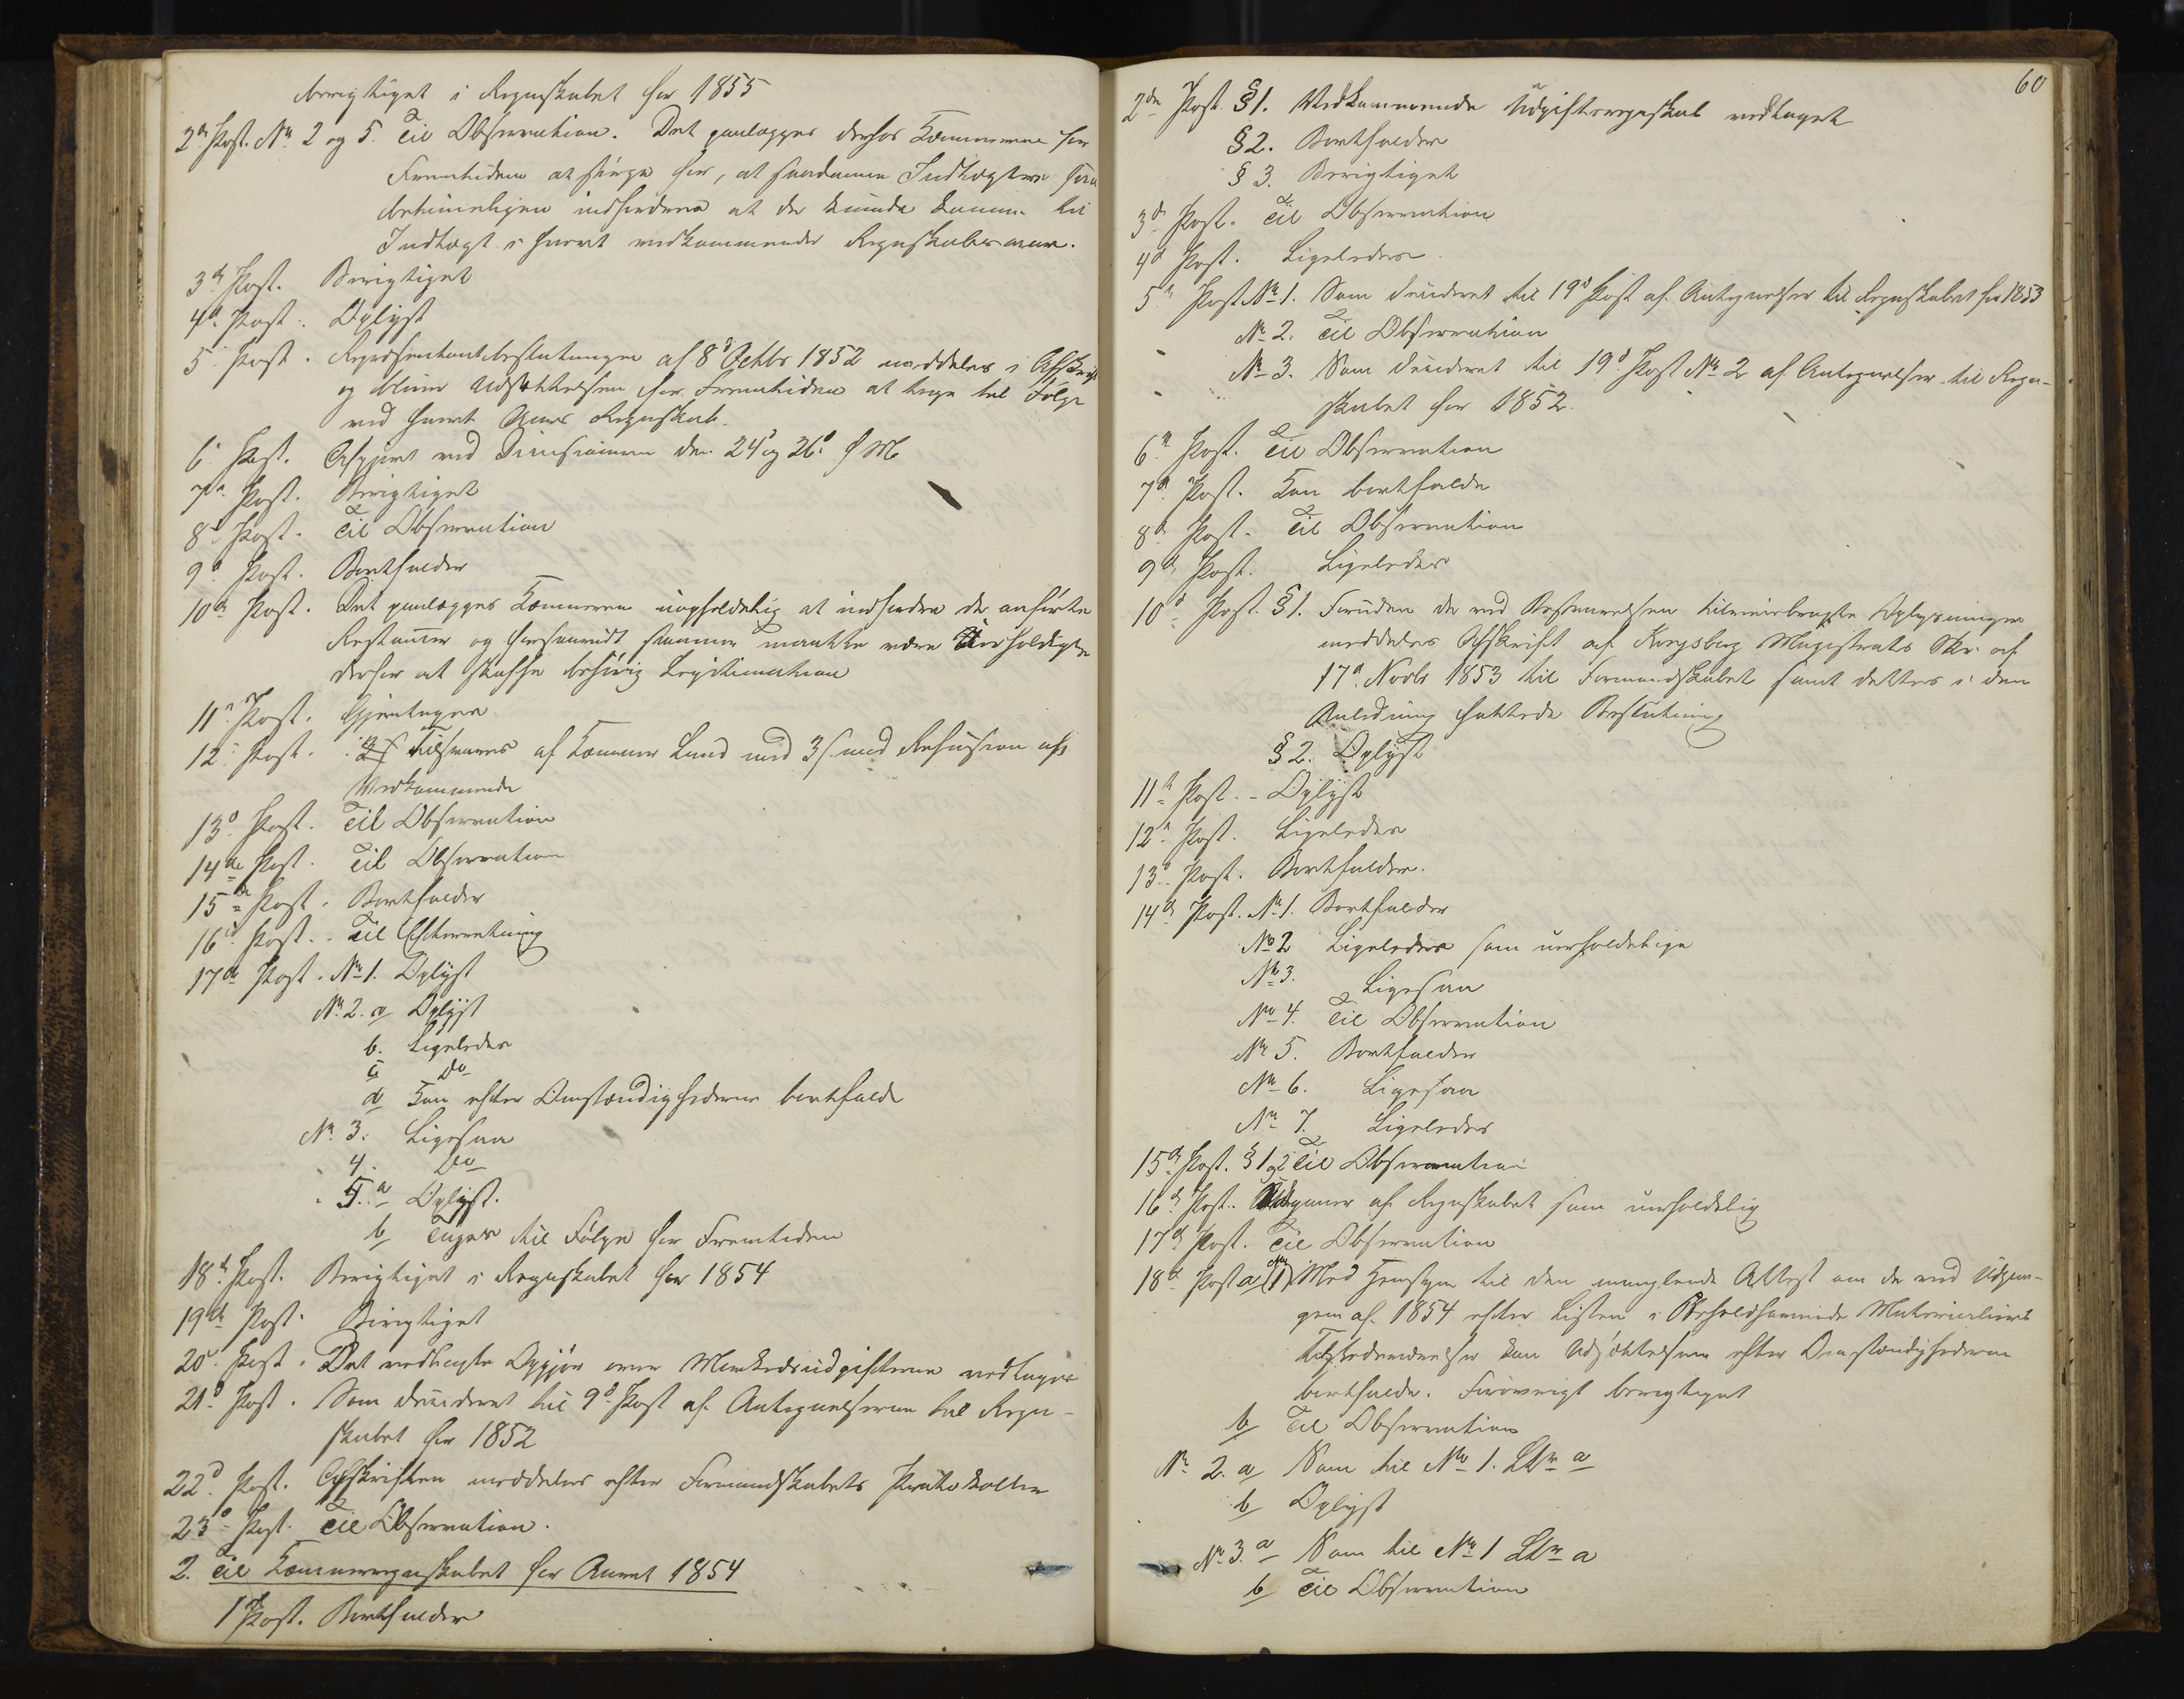 berigtiget i Regnskabet for 1855
2den Post. No 2 og 5. Til Observation. Det paalægges derhos Kæmneren for
Fremtiden at sørge for, at saadanne Indtægter saa
betimeligen indfordres at de kunde komme til
Indtægt i hvert vedkommende Regnskabsaar.
3de Post. Berigtiget
4de Post. Oplyst
5 Post. Repræsentantbeslutningen af 8d Octbr 1852 meddeles i Afskrift
og bliver Udsættelsen for Fremtiden at tage til Følge
ved hvert Aars Regnskab.
6 Post. Afgjort ved Decisionen den 24d og 26d f M
7de Post. Berigtiget
8de Post. Til Observation
9de Post. Bortfalder
10de Post. Det paalægges Kæmneren uopholdelig at indfordre de anførte
Restancer og forsaavidt samme maatte være uerholdelige
derfor at skaffe behørig Legitimation
11te Post. Gjentages
12te Post. tilsvares af Kæmner Lund med 3 s. med Refusion af
Vedkommende
13d Post. Til Observation
14de Post. Til Observation
15de Post. Bortfalder
16d Post. Til Efterretning
17de Post. No 1. Oplyst
No 2. a Oplyst
b. Ligeledes
c Do
d Kan efter Omstændighederne bortfalde
No 3. Ligesaa
4. Do
5. a Oplyst.
b Tages til Følge for Fremtiden
18de Post. Berigtiget i Regnskabet for 1854
19de Post. Berigtiget
20d Post. Det vedlagte Opgjør over Markedsudgifterne vedtages
21d Post. Som decideret til 9d Post af Antegnelserne til Regn-
skabet for 1852
22d Post. Afskriften meddeles efter Formandskabets Protokoller
23d Post. Til Observation.
2. Til Kæmnerregnskabet for Aaret 1854
1 Post. Bortfalder
60
2den Post. § 1. Vedkommende Udgiftsregnskab vedtaget
§ 2. Bortfalder
§ 3. Berigtiget
3de Post. Til Observation
4d Post. Ligeledes
5te Post No 1. Som decideret til 19d Post af Antegnelser til Regnskabet for 1853
No 2. Til Observation
No 3. Som decideret til 19d Post No 2 af Antegnelser til Regn-
skabet for 1852.
6te Post. Til Observation
7de Post. Kan bortfalde
8de Post. Til Observation
9de Post. Ligeledes
10d Post. § 1. Foruden de ved Besvarelsen tilveiebragte Oplysninger
meddeles Afskrift af Kongsberg Magistrats Skr. af
17d Novbr 1853 til Formandskabet samt dettes i den
Anledning fattede Beslutning
§ 2. Oplyst
11te Post. - Oplyst
12te Post. Ligeledes
13d Post. Bortfalder.
14de Post. No 1. Bortfalder
No 2 Ligeledes som uerholdelige
No 3. Ligesaa
No 4. Til Observation
No 5. Bortfalder
No 6. Ligesaa
No 7. Ligeledes
15de Post. § 1 og 2 Til Observation
16de Post. Udgaaer af Regnskabet som uerholdelig
17de Post. Til Observation
18de Post a (No 1) Med Hensyn til den manglende Attest om de ved Udgan-
gen af 1854 efter Listen i Behold havende Materialiers
Tilstedeværelse kan Udsættelsen efter Omstændighederne
bortfalde. Forøvrigt berigtiget
b Til Observation
No 2. a Som til No 1. Ltr a
b Oplyst
No 3. a Som til No 1 Ltr a
b Til Observation